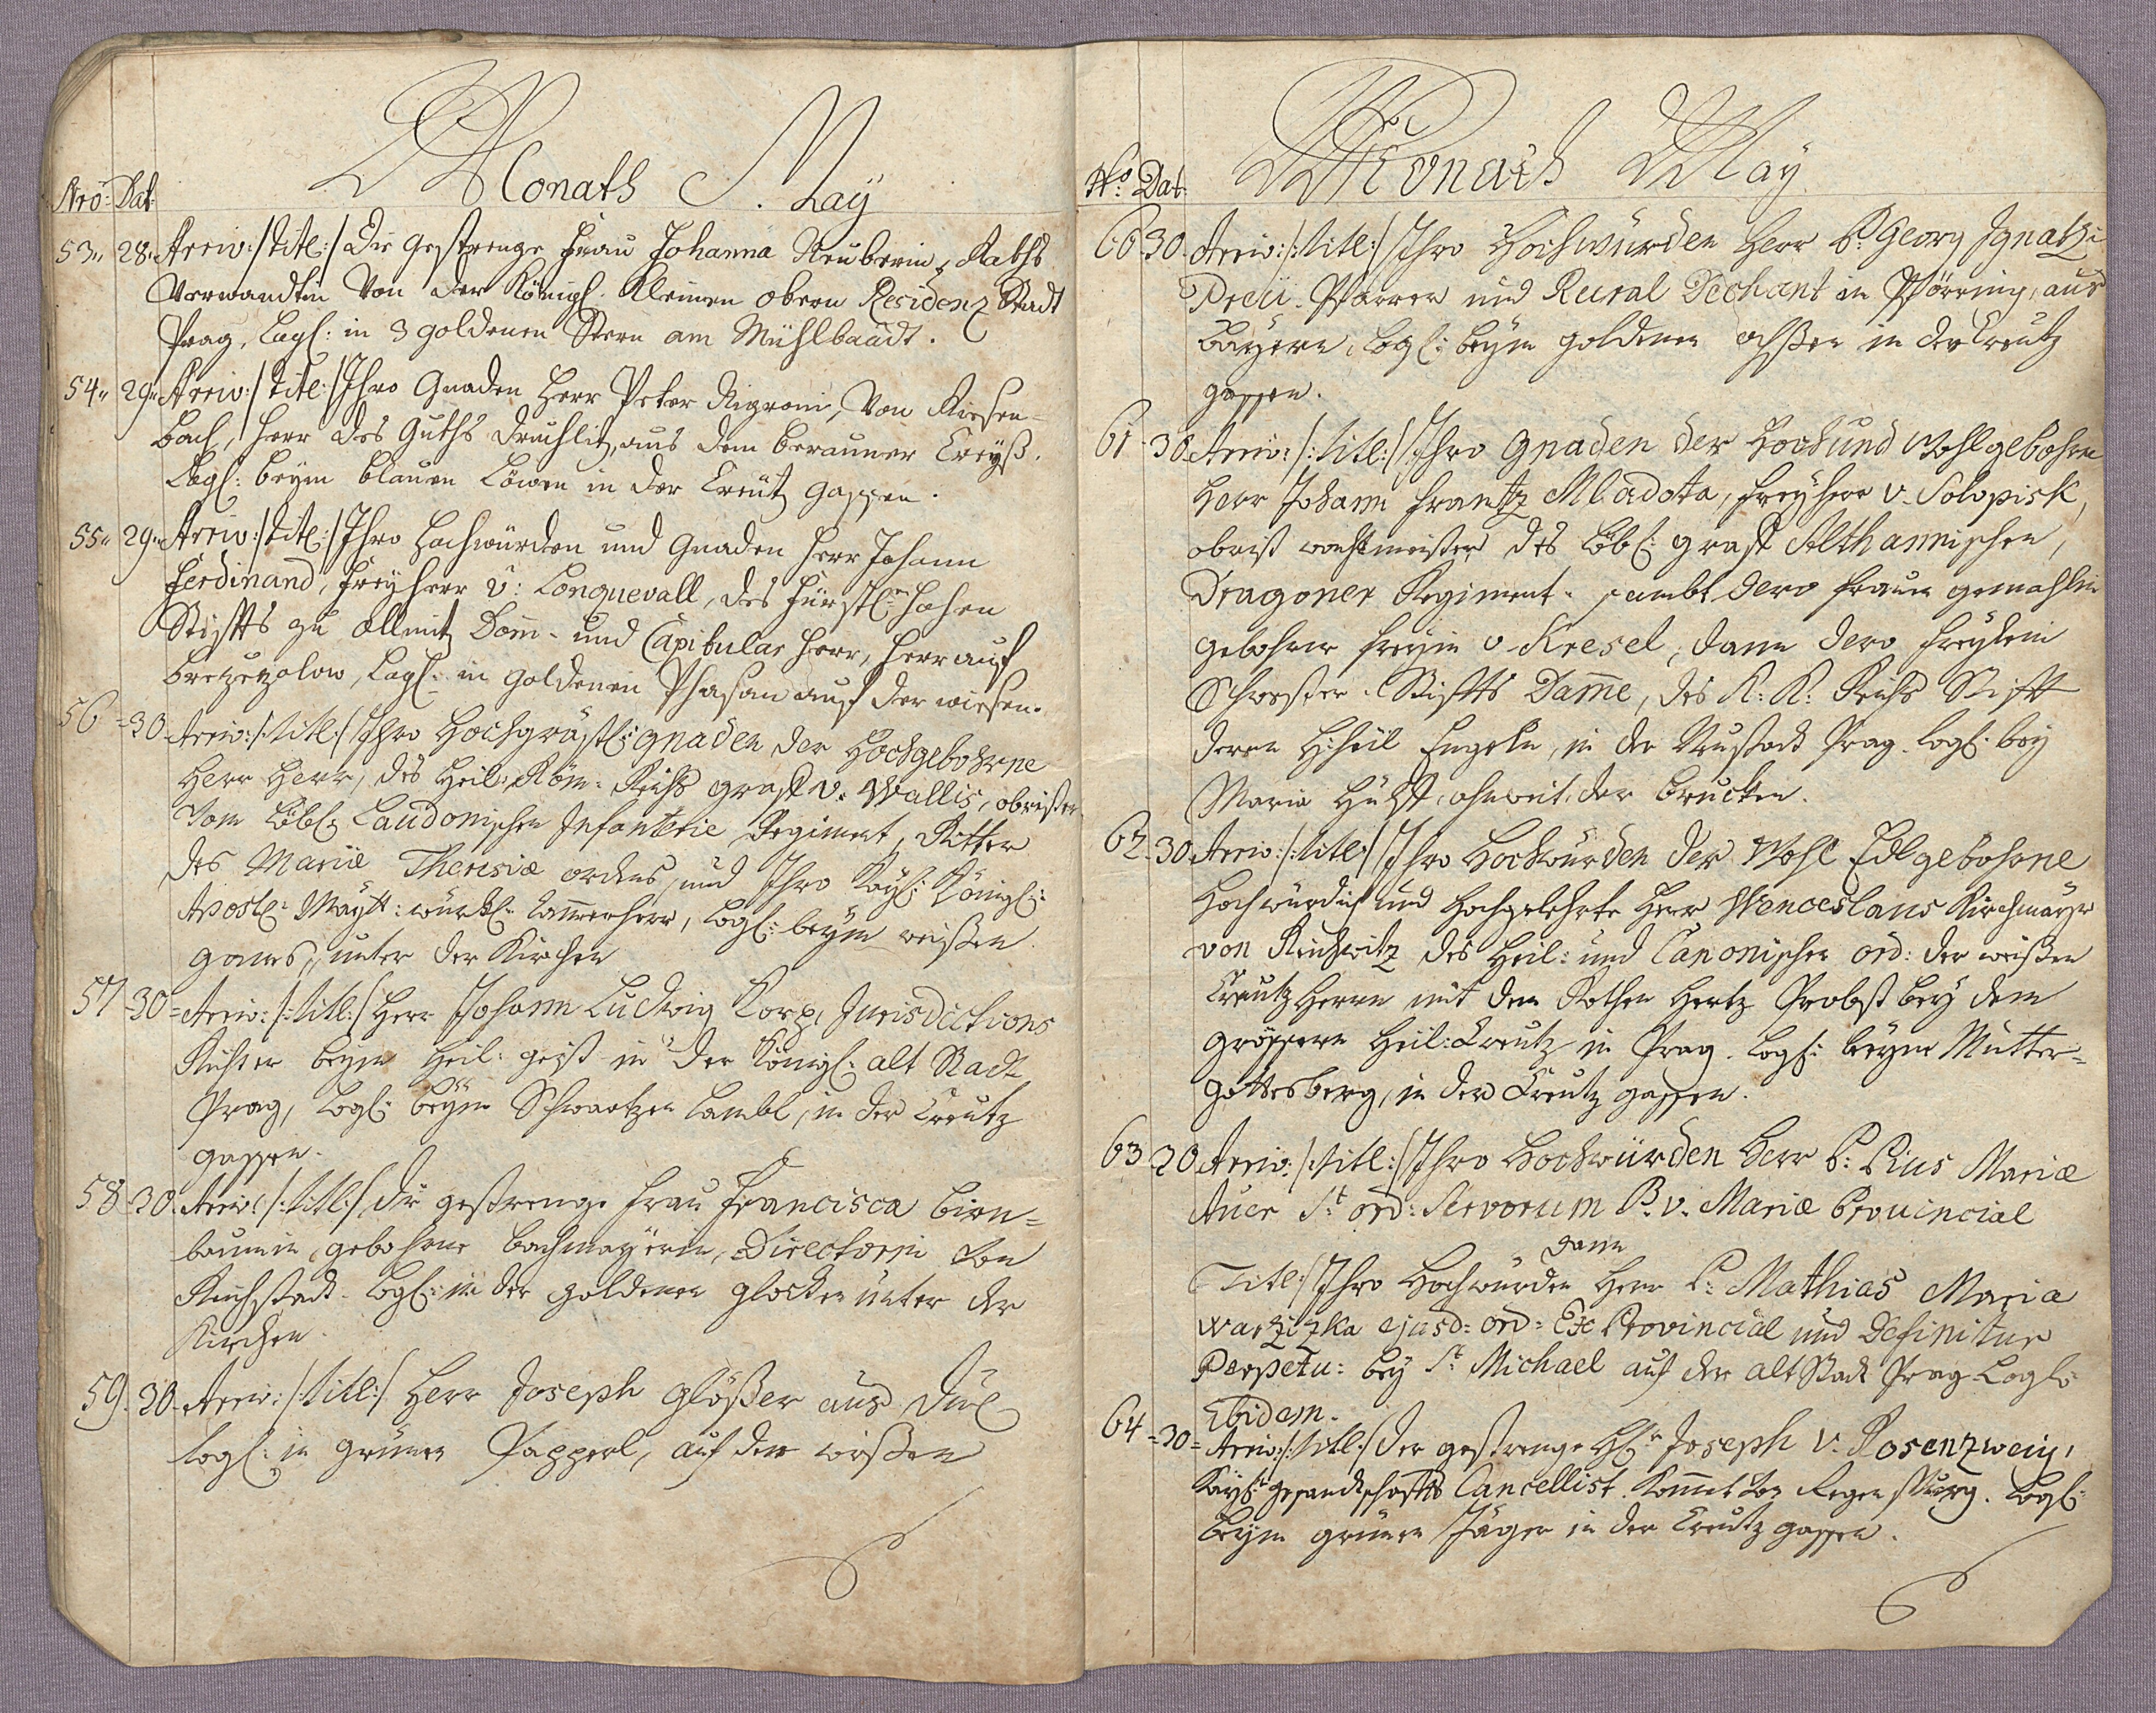 Monaths May
Nro: Dat:
53„ 28„ Arriv: /titl:/ Die gestrenge Frau Johanna Neuberin, Raths
Verwandtin Von der Königl: Kleinen obern Residenz Stadt
Prag, Logl: in 3 goldenen Stern am Mühlbaadt.
54„ 29„ Arriv: /titl:/ Ihro Gnaden Herr Peter Nigroni, Von Riesen-
bach, Herr des Guths Druhlitz, aus dem berauner Creyß.
Logl: beym blauen Löwen in der Creutz gassen.
55„ 29„ Arriv: /titl:/ Ihro Hochwürden und Gnaden Herr Johann
Ferdinand, Freyherr v: Longuevall, des Fürstl:en Hohen
Stiffts zu ollmitz Dom- und Capitular Herr, Herr auf
Logl: in goldenen Phasan auf der wiesen.
56 = 30 Arriv: /:titl:/ Ihro Hochgräfl: gnaden der Hochgebohrne
Herr Herr, des Heil: Röm: Reichs graf v. Wallis, obrister
Vom Löbl: Laudonischen Infanterie Regiment, Ritter
des Mariæ Theresiæ ordens, und Ihro Kayl: Königl:
Apostl: Maytt: würkl: Cammerherr, Logl: beym weißen
ganns, unter der Kirchen
57 = 30 = Arriv: /:titl:/ Herr Johann Ludwig Korp, Jurisdictions
Richter beym Heil: geist in der Königl: alt Stadt
Prag, Logl: beym Schwartzen Lambl, in der Creutz
gassen.
58 = 30. Arriv: /:titl:/ Die gestrenge Frau Francisca Birn=
baumin, gebohrne Bachmayerin, Directorin von
Reichstadt. Logl: in der goldenen glocken unter der
Kirchen.
59. 30. Arriv: /:titl:/ Herr Joseph Glößer aus
logl: in grünen Papperl, auf der wießen
Monath May
No: Dat:
60. 30. Arriv: /:titl:/ Ihro Hochwürden Herr P: Georg Ignatzi
Preu. Pfarrer und Rural Dechant in Pförring, aus
Bayern, logl: beym goldenen ochßen in der Creutz
gassen.
61 - 30. Arriv: /:titl:/ Ihro Gnaden der Hoch und Wohlgebohrne
Herr Johann Frantz Mladota, Freyherr v. Solopisk,
obrist wachtmeister des Löbl: graf Althannischen,
Dragoner Regiment. sambt dero Frauen gemahlin
gebohrne Freyin v. Kresel, dann dero Freylein
Schwester. Stiffts Dame, des K: K: Reichs Stifft
deren Heil Engeln, in der Neustadt Prag. logl: bey
Maria Hülff, ohnweit der brucken.
62. 30. Arriv: /:titl:/ Ihro Hochwürden der Wohl Edlgebohrne
Hochwürdich und Hochgelehrte Herr Wenceslaus Kirchmayer
von Reichwitz des Heil: und Canonischen ord: der weißen
Creutz Herrn mit dem Rothen Hertz Probst bey dem
grössern Heil: Creutz in Prag. logl: beym Mutter=
gottesberg, in der Creutz gassen.
63. 30 Arriv: /:titl:/ Ihro Hochwürden Herr P: Pius Mariæ
Auer St: ord: Servorum B. v. Mariæ Provincial
dann
Titl:/ Ihro Hochwürden Herr P: Mathias Maria
Wartziczka ejusd: ord: Ex Provincial und Definitur
Perpetu: bey St: Michael auf der alt Stadt Prag. Logl:
Ebidem.
64 = 30 = Arriv: /:titl:/ Der gestrenge Hr: Joseph v. Rosenzweig,
Kayl: gesandtschaffts Cancellist. Kommt von Regensburg. Logl:
beym grünen Jäger in der Creutz gassen.